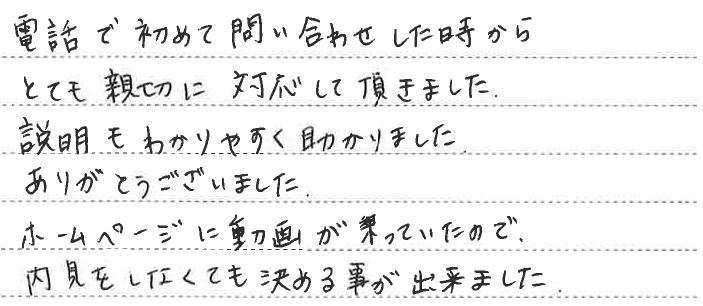 電話で初めて問い合わせした時から
とても親切に対応して頂きました.
説明もわかりやすく助かりました.
ありがとうございました.
ホームページに動画が乗っていたので.
内見をしなくても決める事が出来ました.